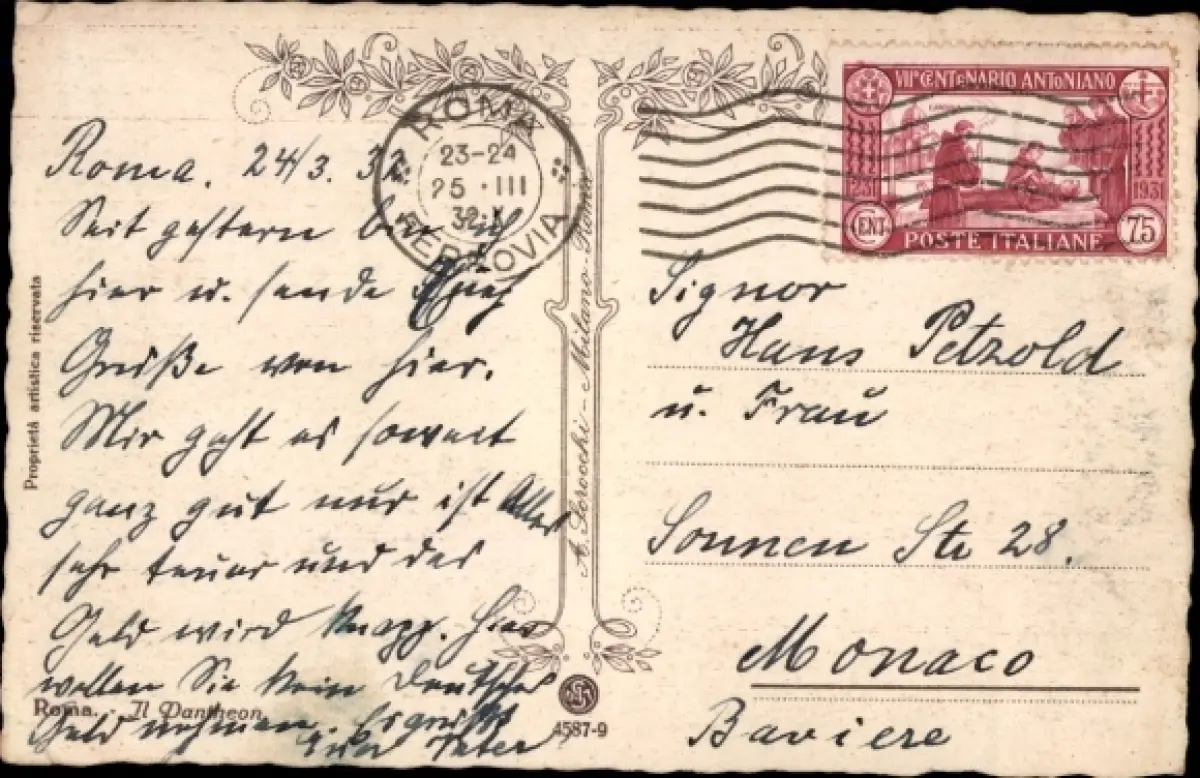 Roma. 24/3. 32
Seit gestern bin ich
hier u. sende Euch
Grüße von hier.
Mir geht es soweit
ganz gut nur ist Alles
sehr teuer und das
Geld wird knapp. Hier
wollen Sie kein Deutsches
Geld nehmen. Es grüßt
Euer Vater
Roma. - Il Pantheon
Proprietà artistica riservata
ROMA
23-24
25 · III
32 X
FERROVIA
A. Scrocchi - Milano-Roma
4587-9
VII° CENTENARIO ANTONIANO
1231
1931
CENT.
75
POSTE ITALIANE
Signor
Hans Petzold
u. Frau
Sonnen Str 28.
Monaco
Baviere